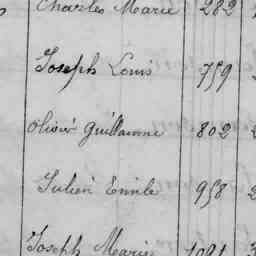 Charles Marie 282
Joseph Louis 759
Olivier Guillaume 802
Julien Emile 958
Joseph Marie 1091